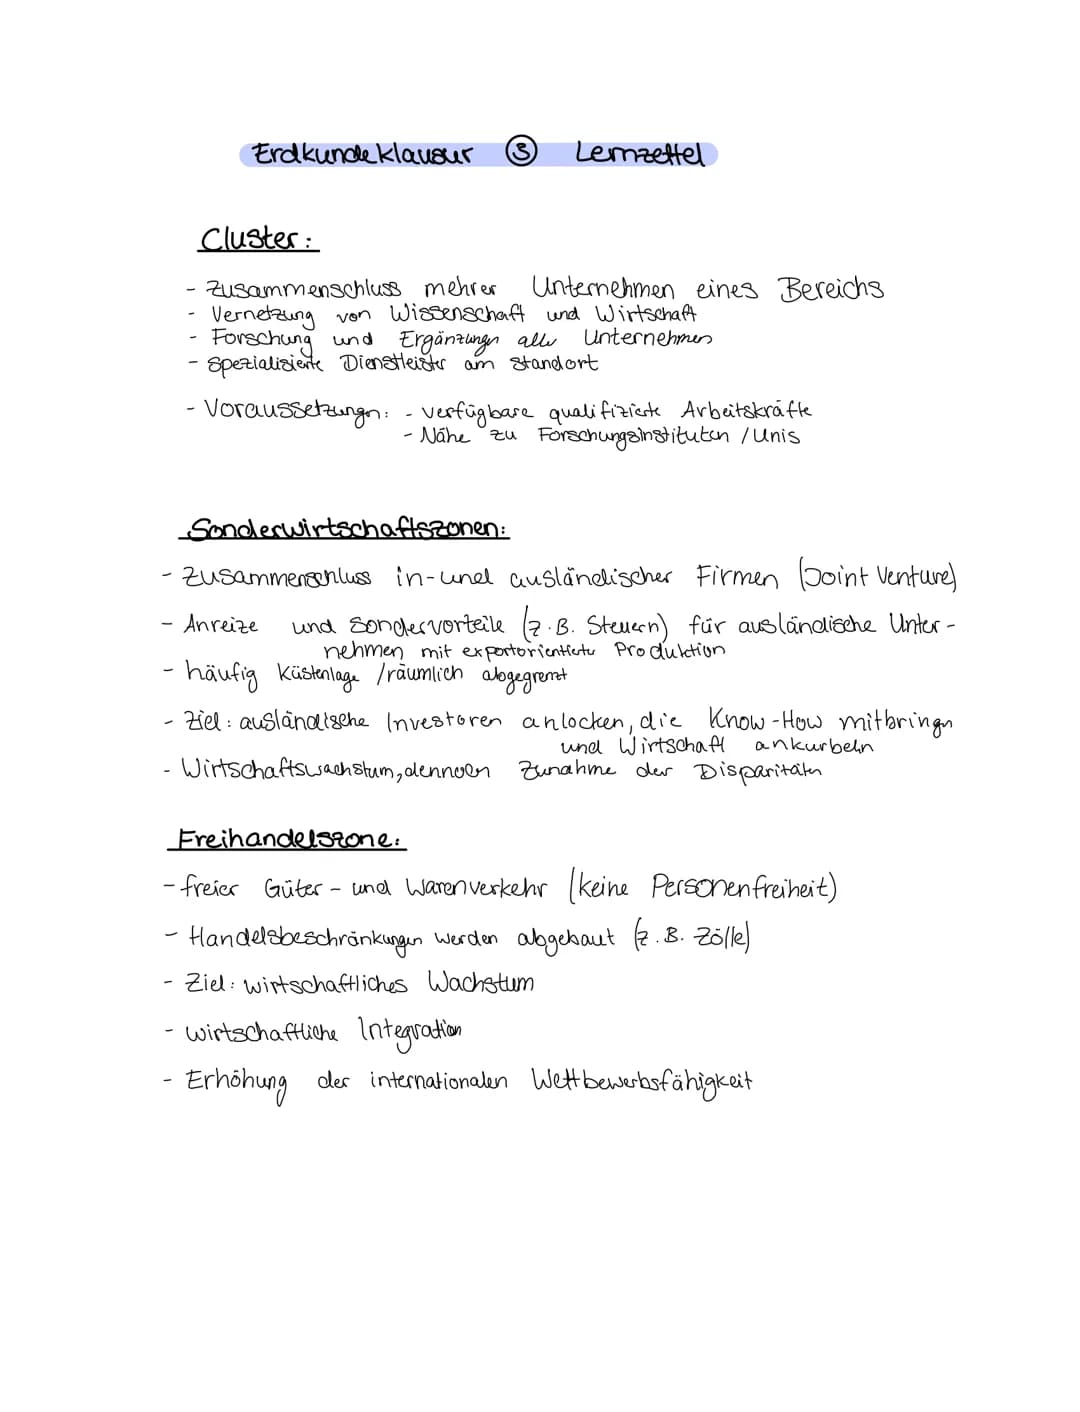 Erdkundeklausur ③ Lernzettel
Cluster:
- Zusammenschluss mehrer Unternehmen eines Bereichs
- Vernetzung von Wissenschaft und Wirtschaft
- Forschung und Ergänzungen aller Unternehmen
- Spezialisierte Dienstleister am Standort
- Voraussetzungen: - verfügbare qualifizierte Arbeitskräfte
- Nähe zu Forschungsinstituten / Unis
Sonderwirtschaftszonen:
- Zusammenschluss in- und ausländischer Firmen (Joint Venture)
- Anreize und Sondervorteile (z.B. Steuern) für ausländische Unter-
nehmen mit exportorientierter Produktion
- häufig Küstenlage / räumlich abgegrenzt
- Ziel: ausländische Investoren anlocken, die Know-How mitbringen
und Wirtschaft ankurbeln
- Wirtschaftswachstum, dennoch Zunahme der Disparitäten
Freihandelszone:
- freier Güter- und Warenverkehr (keine Personenfreiheit)
- Handelsbeschränkungen werden abgebaut (z.B. Zölle)
- Ziel: wirtschaftliches Wachstum
- wirtschaftliche Integration
- Erhöhung der internationalen Wettbewerbsfähigkeit